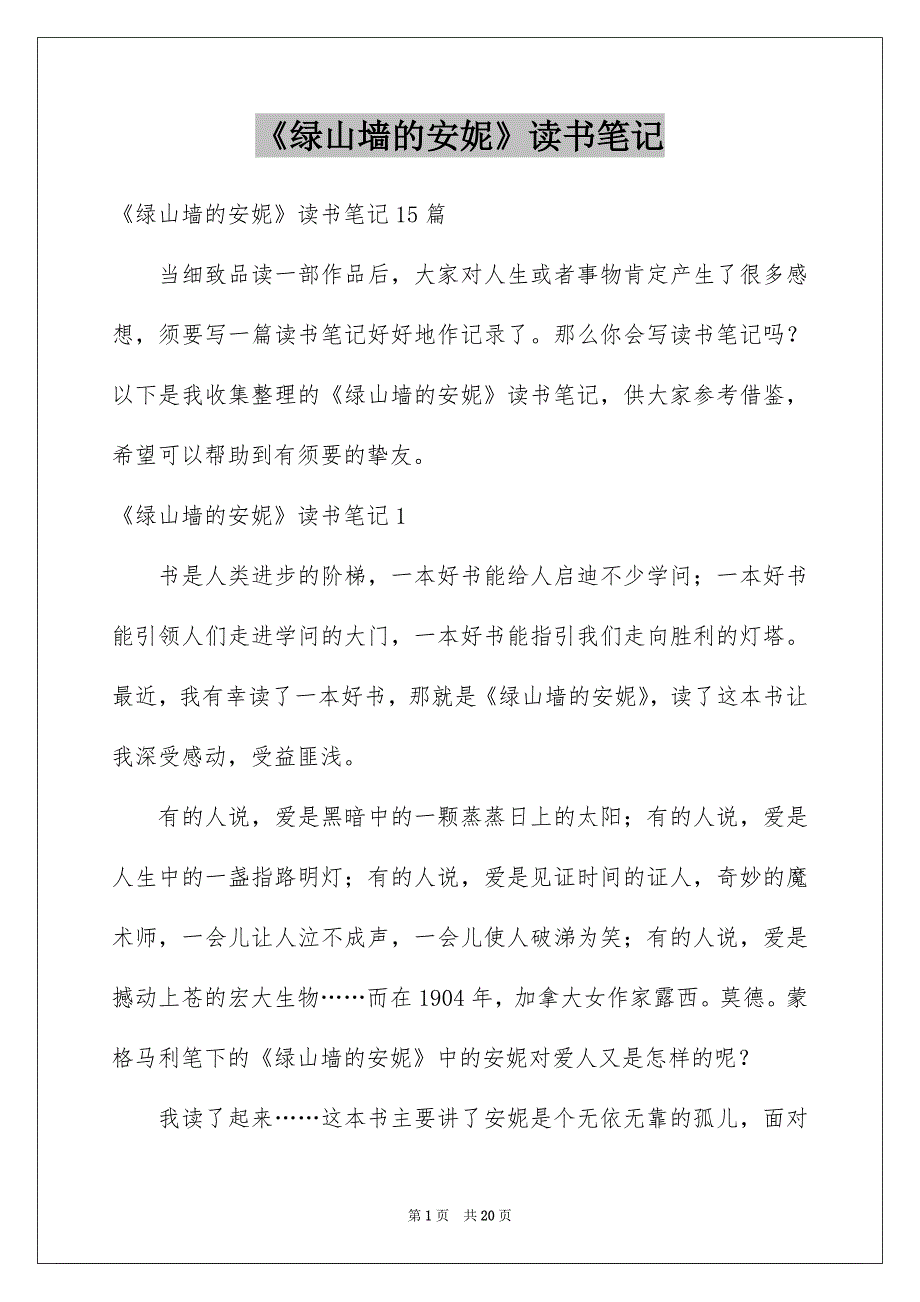 《绿山墙的安妮》读书笔记
《绿山墙的安妮》读书笔记 15 篇
当细致品读一部作品后，大家对人生或者事物肯定产生了很多感
想，须要写一篇读书笔记好好地作记录了。那么你会写读书笔记吗？
以下是我收集整理的《绿山墙的安妮》读书笔记，供大家参考借鉴，
希望可以帮助到有须要的挚友。
《绿山墙的安妮》读书笔记 1
书是人类进步的阶梯，一本好书能给人启迪不少学问；一本好书
能引领人们走进学问的大门，一本好书能指引我们走向胜利的灯塔。
最近，我有幸读了一本好书，那就是《绿山墙的安妮》，读了这本书让
我深受感动，受益匪浅。
有的人说，爱是黑暗中的一颗蒸蒸日上的太阳；有的人说，爱是
人生中的一盏指路明灯；有的人说，爱是见证时间的证人，奇妙的魔
术师，一会儿让人泣不成声，一会儿使人破涕为笑；有的人说，爱是
撼动上苍的宏大生物……而在 1904 年，加拿大女作家露西。莫德。蒙
格马利笔下的《绿山墙的安妮》中的安妮对爱人又是怎样的呢？
我读了起来……这本书主要讲了安妮是个无依无靠的孤儿，面对
第 1 页 共 20 页